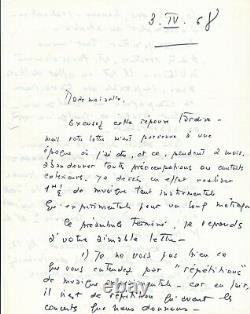 3. IV. 68
Mademoiselle,
Excusez cette réponse tardive
mais votre lettre m'est parvenue à une
époque où j'ai dû, et ce, pendant 2 mois,
abandonner toute préoccupation au contacts
extérieurs. Je devais en effet réaliser
1 H ½ de musique tant instrumentale
qu'expérimentale pour un long métrage
Ce préambule terminé, je réponds
à votre aimable lettre -
1) Je ne vois pas bien ce
que vous entendez par "répétitions"
de musique - car en fait,
il n'est de répétition qu'avant les
concerts que nous donnons -